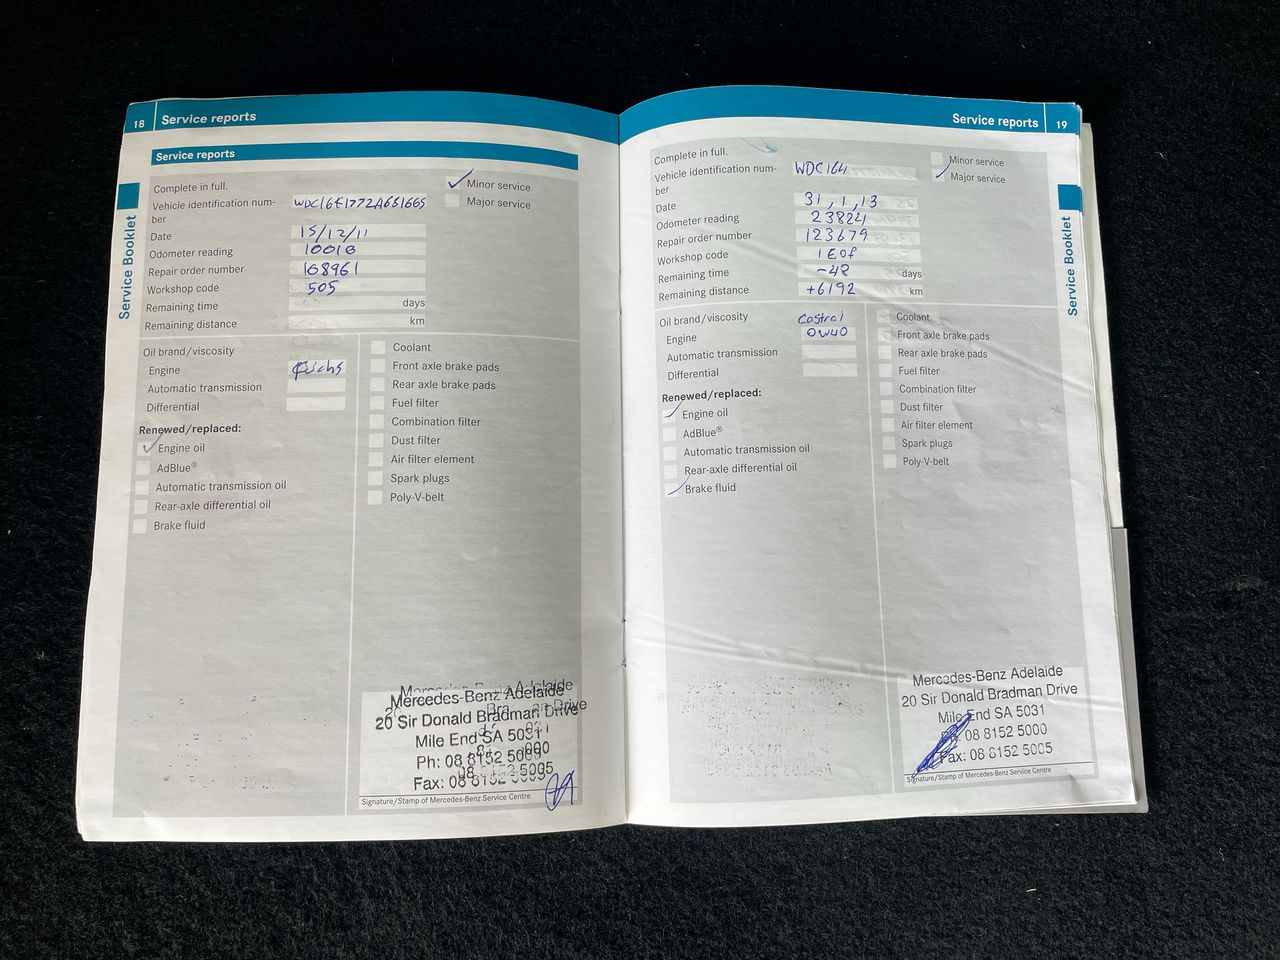 18 Service reports
Service reports
Service Booklet
Complete in full.
Minor service
Major service
Vehicle identification num-
ber
Date 15/12/11
Odometer reading 10010
Repair order number 108961
Workshop code 505
Remaining time days
Remaining distance km
Oil brand/viscosity
Engine Fuchs
Automatic transmission
Differential
Renewed/replaced:
Engine oil
AdBlue®
Automatic transmission oil
Rear-axle differential oil
Brake fluid
Coolant
Front axle brake pads
Rear axle brake pads
Fuel filter
Combination filter
Dust filter
Air filter element
Spark plugs
Poly-V-belt
Mercedes-Benz Adelaide
20 Sir Donald Bradman Drive
Mile End SA 5031
Ph: 08 8152 5000
Fax: 08 8152 5005
Signature/Stamp of Mercedes-Benz Service Centre
Service reports 19
Service Booklet
Complete in full.
Minor service
Major service
Vehicle identification num- WDC164
ber
Date 31,1,13
Odometer reading 23824
Repair order number 123679
Workshop code 1E0f
Remaining time -48 days
Remaining distance +6192 km
Oil brand/viscosity Castrol
Engine 0W40
Automatic transmission
Differential
Renewed/replaced:
Engine oil
AdBlue®
Automatic transmission oil
Rear-axle differential oil
Brake fluid
Coolant
Front axle brake pads
Rear axle brake pads
Fuel filter
Combination filter
Dust filter
Air filter element
Spark plugs
Poly-V-belt
Mercedes-Benz Adelaide
20 Sir Donald Bradman Drive
Mile End SA 5031
08 8152 5000
Fax: 08 8152 5005
Signature/Stamp of Mercedes-Benz Service Centre